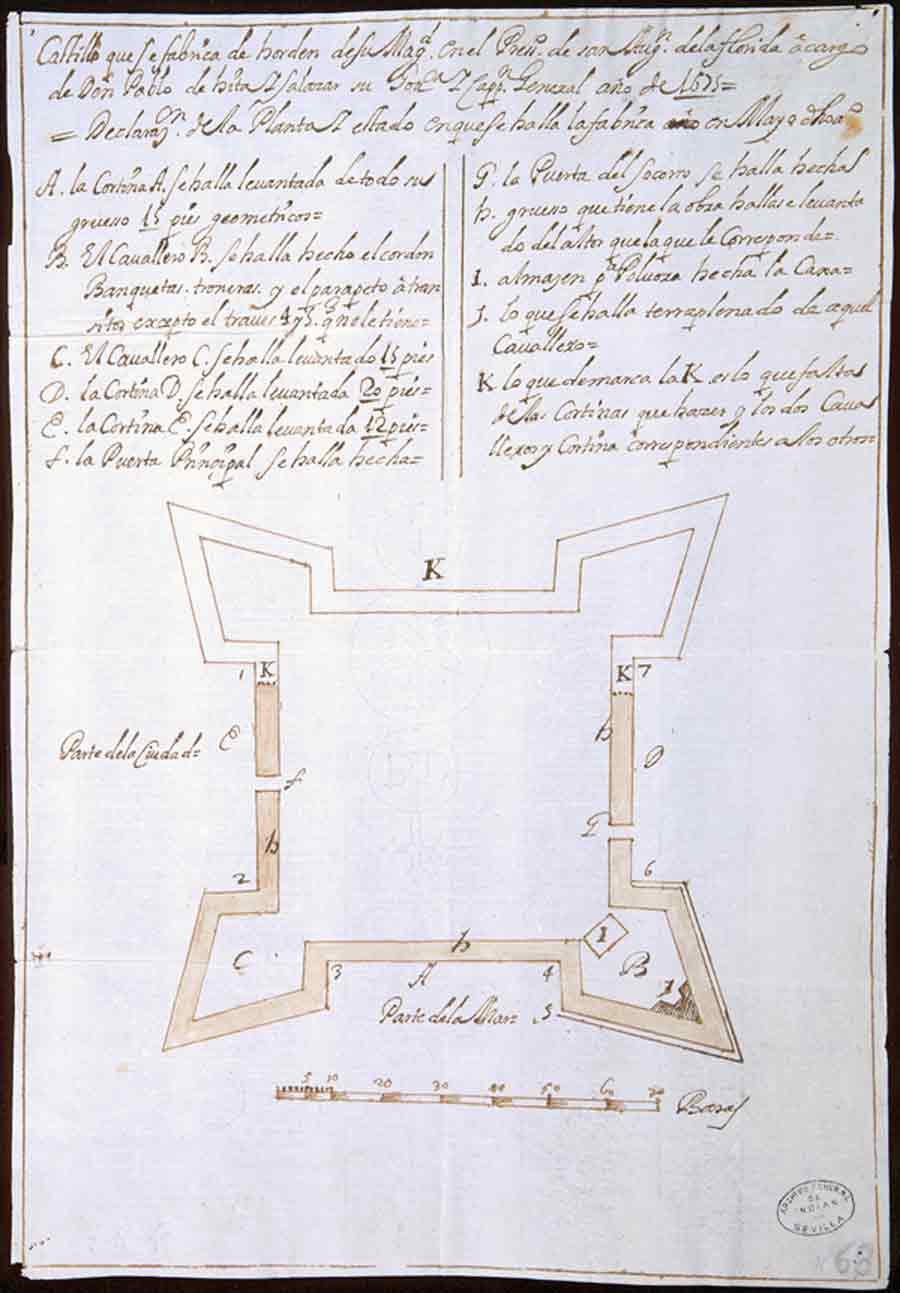 Castillo que se fabrica de horden de su Mag.d en el Pres.o de san Aug.n de la florida â cargo
de Don Pablo de hita Y Salazar su Gov.or Y Cap.n General año de 1675=
= Declaraz.n de la Planta Y estado en que se halla la fabrica en Mayo
A. la Cortina A. se halla levantada de todo su
grueso 15 pies geometricos=
B. El Cavallero B. se halla hecho el cordon
Banquetas. troneras. y el parapeto â tran
sitos excepto el traves 4 y 5. q no le tiene=
C. El Cavallero C. se halla levantado 15 pies
D. la Cortina D. se halla levantada 20 pies=
E. la Cortina E. se halla levantada 12 pies=
f. la Puerta Prinçipal se halla hecha=
G. la Puerta del Socorro se halla hecha
h. grueso que tiene la obra hallase levanta
do del altor que la que le Corresponde=
1. almajen p.a Polvora hecha la Caxa=
J. lo que se halla terraplenado de aquel
Cavallero=
K lo que demarca la K. es lo que falta
de las Cortinas que hazer y los dos Cava
lleros y Cortina correspondientes a los otros=
K
1 K K 7
Parte de la Ciudad= E h D
f
G
h
2 6
C h 1 B
3 A 4 J
Parte de la Mar= 5
5 10 20 30 40 50 60 70 Baras
ARCHIVO GENERAL
DE
INDIAS
SEVILLA
68